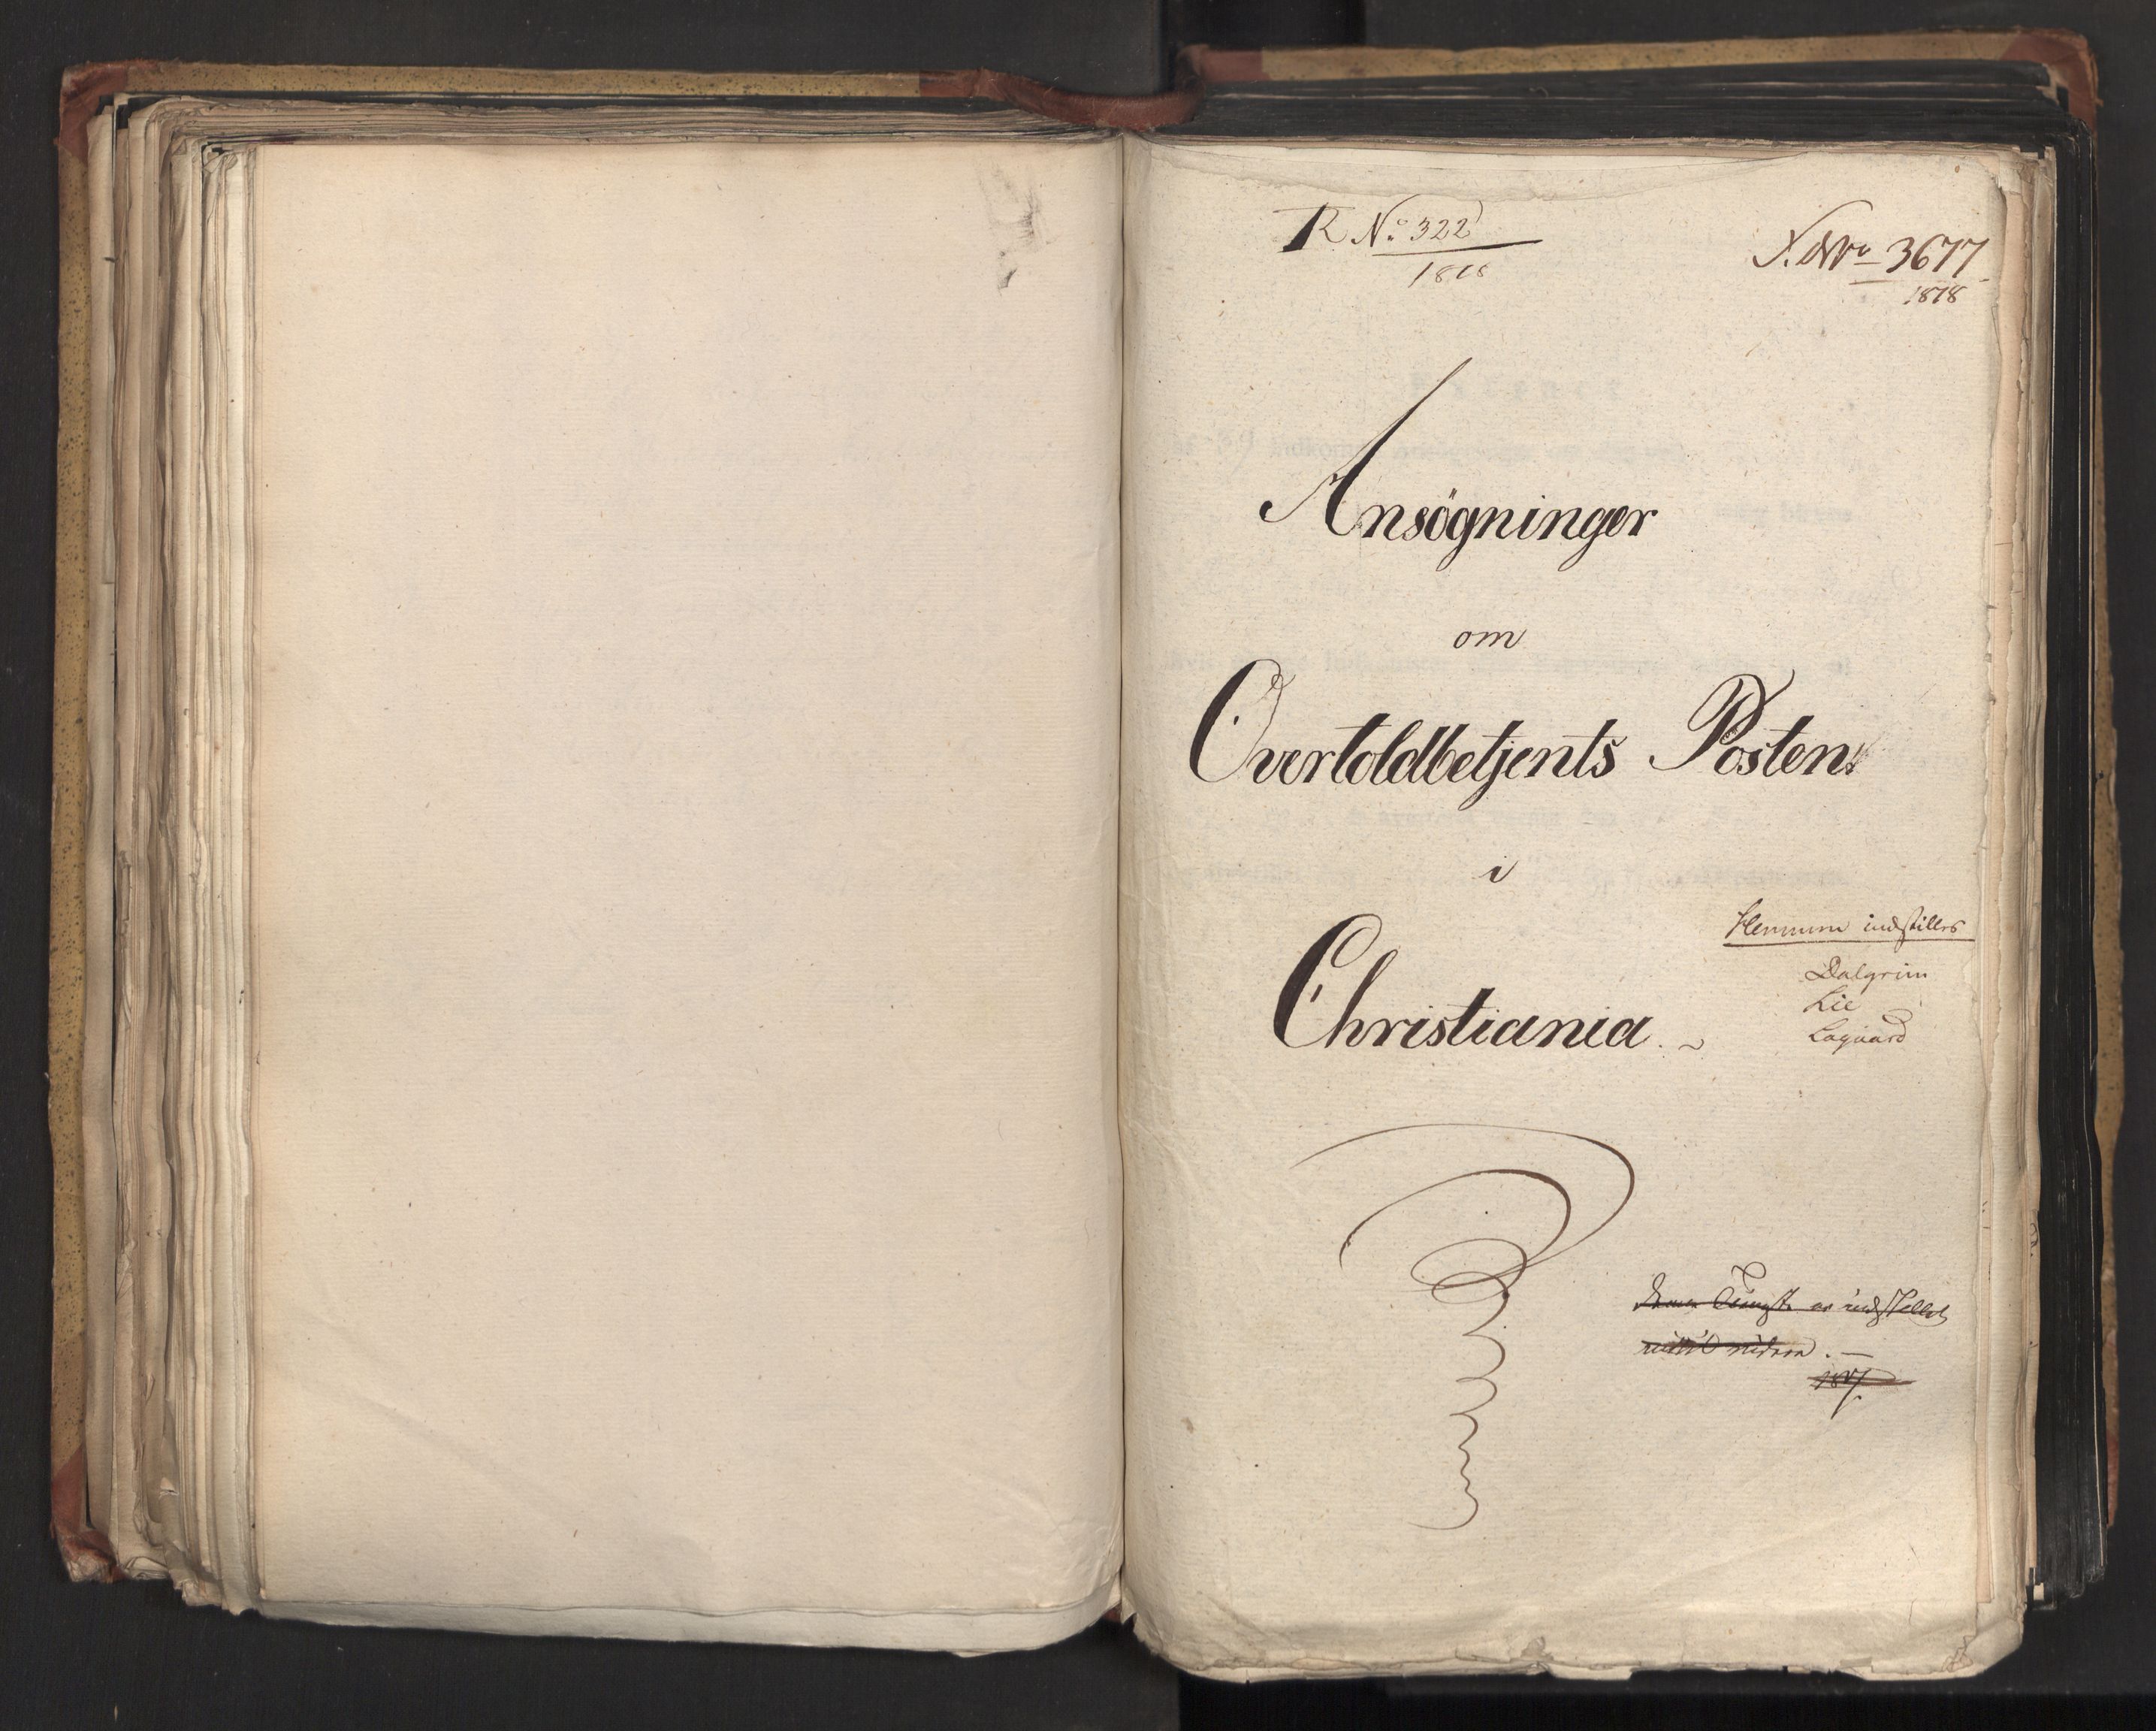 R No 322
1818
J. No 3677
1818
Ansögninger
om
Overtoldbetjents Posten
i
Christiania
Hennum indstilles
Dalgrim
Lie
Lagaard
er indstillet